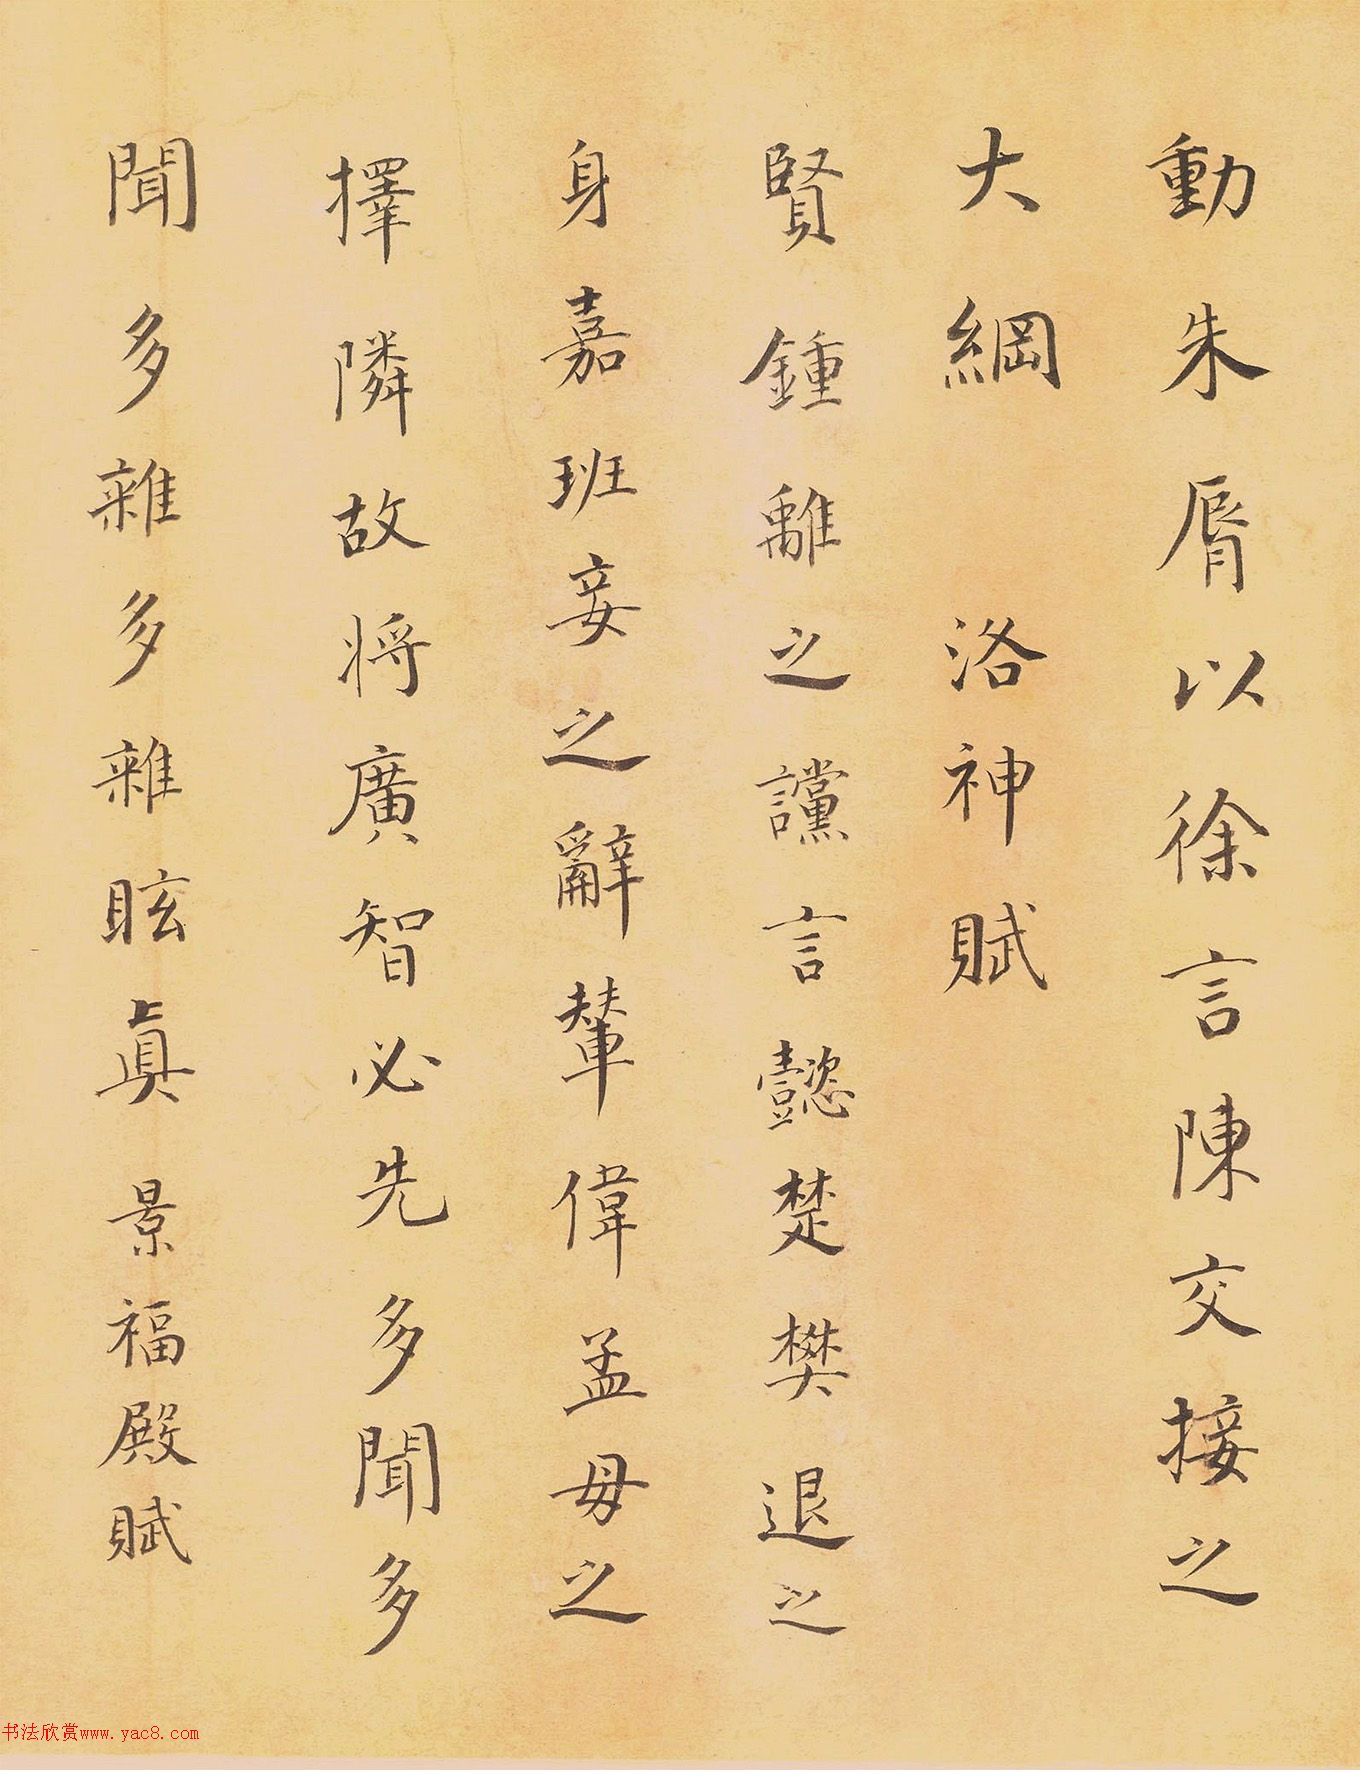 動朱脣以徐言陳交接之
大綱 洛神賦
賢鍾離之讜言懿楚樊退之
身嘉班妾之辭輦偉孟母之
擇隣故将廣智必先多聞多
聞多雜多雜眩真 景福殿賦
书法欣赏www.yac8.com